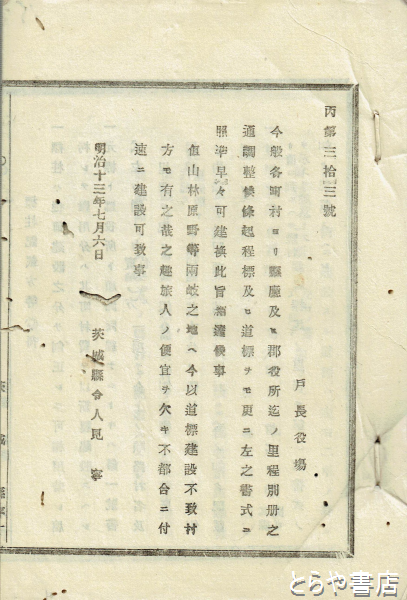 丙第三拾三號
戸長役塲
今般各町村ヨリ縣廳及ヒ郡役所迄ノ里程別册之
通調整候條起程標及ヒ道標ヲモ更ニ左之書式ニ
照準早々可建換此旨相達候事
但山林原野等兩岐之地ヘ今以道標建設不致村
方モ有之哉之趣旅人ノ便宜ヲ欠キ不都合ニ付
速ニ建設可致事
明治十三年七月六日
茨城縣令人見寧
とらや書店